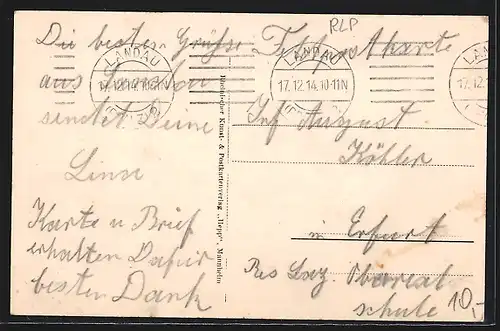 RLP
Die besten Grüsse
aus Landau
sendet Deine
Linse
Karte u Brief
erhalten Dafür
besten Dank
LANDAU
17.12.14.10-11N
LANDAU
17.12.14.10-11N
LANDAU
17.12.
Rheinischer Kunst- & Postkartenverlag „Hepp“, Mannheim
Feldpostkarte
Inf August
Köhler
in Erfurt
Res Laz. Oberreal
schule
10,-